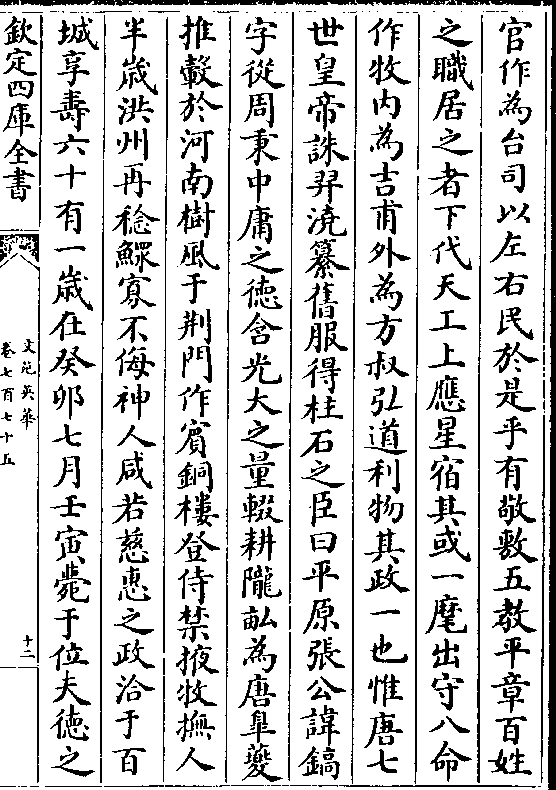 官作為台司以左右民於是乎有敬敷五教平章百姓
之職居之者下代天工上應星宿其或一麾出守八命
作牧内為吉甫外為方叔弘道利物其政一也惟唐七
世皇帝誅羿澆纂舊服得柱石之臣曰平原張公諱鎬
字從周秉中庸之徳含光大之量輟耕隴畝為唐臯夔
推轂於河南樹風于荆門作賓銅樓登侍禁掖牧撫人
半嵗洪州再稔鰥寡不侮神人咸若慈惠之政洽于百
城享壽六十有一嵗在癸卯七月壬寅薨于位夫徳之
欽定四庫全書
文苑英華
卷七百七十五
十二